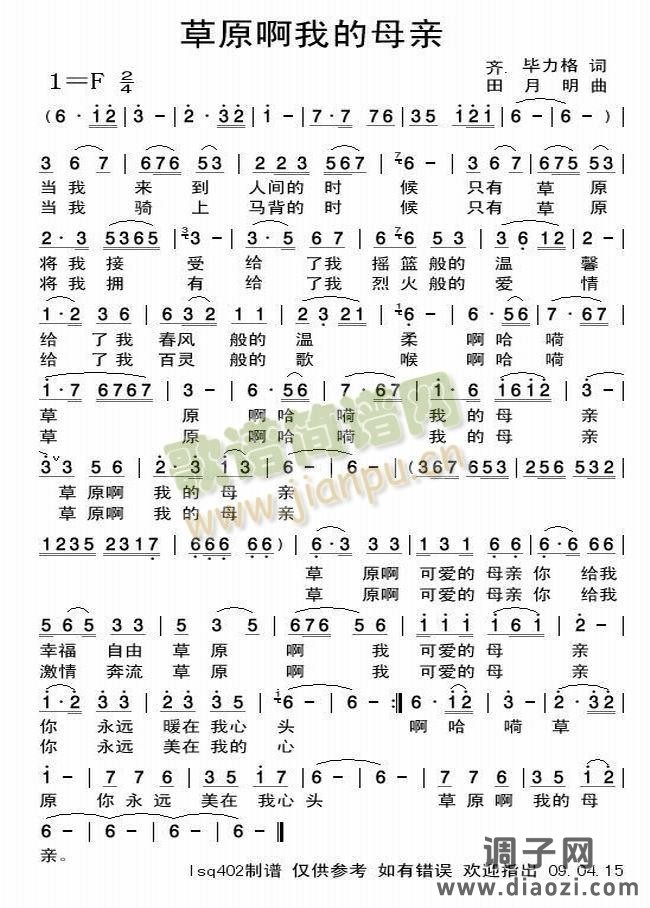 草原啊我的母亲
齐. 毕力格 词
1=F 2/4
田 月 明 曲
(6· i2 | 3 - | 2· 32 | i - | 7·7 76 | 35 i2i | 6 - | 6 - )|
3 6 7 | 676 53 | 2 2 3 567 | 6 - | 3 6 7 | 675 53 |
当我 来 到 人间的 时 候 只有 草 原
当我 骑 上 马背的 时 候 只有 草 原
2·3 5365 | 3 - | 3·5 67 | 676 53 | 3 6 12 | 2 - |
将我 接 受 给 了我 摇篮般的 温 馨
将我 拥 有 给 了我 烈火般的 爱 情
1·2 36 | 632 11 | 2321 | 6 - | 6·56 | 7·67 |
给 了我 春风 般的 温 柔 啊哈 嗬
给 了我 百灵 般的 歌 喉 啊哈 嗬
i·7 6767 | 3 - | 6·56 | 7·67 | i·6 i6i2 | 3 - |
草 原 啊哈 嗬 我的母 亲
草 原 啊哈 嗬 我的母 亲
3 3 56 | 2·3 i3 | 6 - | 6 - | (367 653 | 256 532 |
草 原啊 我 的 母 亲
草 原啊 我 的 母 亲
1235 2317 | 666 66) | 6·3 33 | 131 66 | 6·6 66 |
草 原啊 可爱的 母亲你 给我
草 原啊 可爱的 母亲你 给我
565 33 | 5 3 5 | 676 56 | i i i 6 i | 2 - |
幸福 自由 草 原 啊 我 可爱的 母 亲
激情 奔流 草 原 啊 我 可爱的 母 亲
i·2 33 | 23 35 | 6 - | 6 - :‖ 6·i2 | 3 - | 2·32 |
你 永远 暖在我心 头 啊 哈 嗬 草
你 永远 美在我的 心
i - | 7 7 6 | 35 i7 | 6 - | 6 - | 7 7 6 | 35 i2 |
原 你 永 远 美在 我心 头 草 原啊 我的母
6 - | 6 - | 6 - | 6 - ‖
亲。
lsq402制谱 仅供参考 如有错误 欢迎指出 09.04.15
歌谱简谱网
www.jianpu.cn
调子网
www.diaozi.com